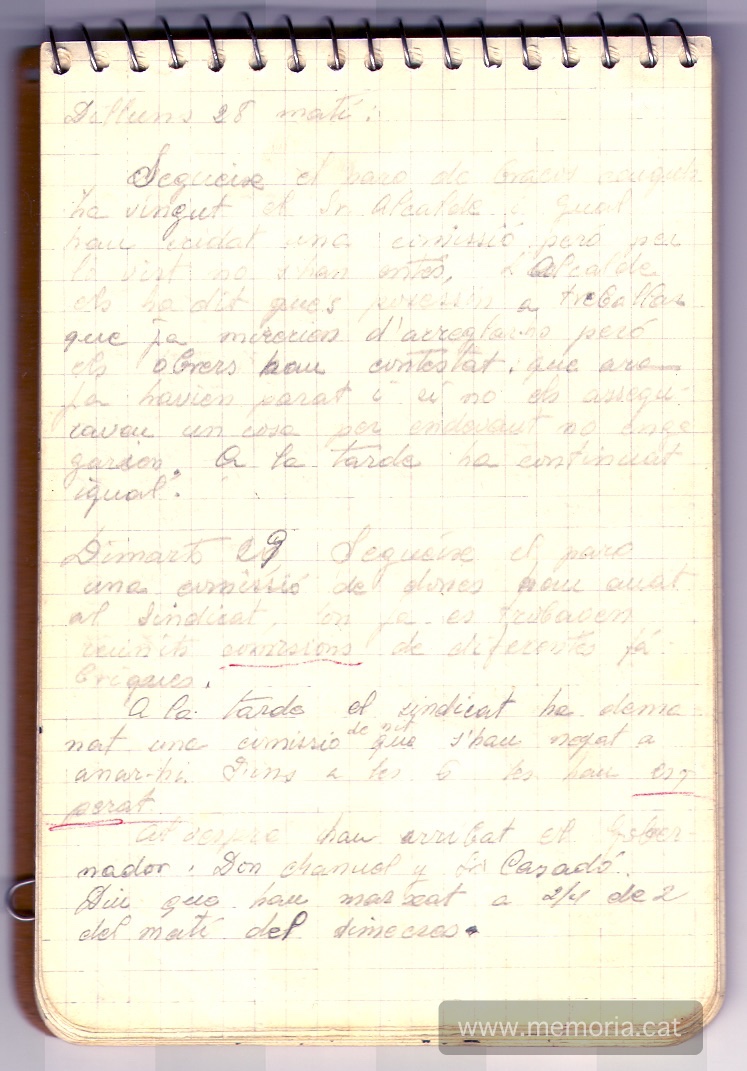 Dilluns 28 matí:
Segueixe el paro de braços caiguts
ha vingut el Sr. Alcalde i igual
hau cridat una cimissió peró per
lo vist no s'han entés, L'Alcalde
els ha dit ques posessin a treballar
que ja mirarien d'arreglarho peró
els obrers hau contestat, que ara
ja havien parat i si no els assegu-
ravau un cosa per endavant no enge
garien. A la tarde ha continuat
igual.
Dimarts 29 Segueixe el paro
una cimissió de dones hau anat
al Sindicat, on ja es trobaven
reunits comisions de diferentes fá-
briques.
A la tarde el sindicat ha dema
nat una cimissio de nit que s'hau negat a
anar-hi. Fins a les 6 les hau esp
perat
Al vespre hau arribat el Gober-
nador, Don Manuel y Sr Casadó.
Diu que hau marxat a 2/4 de 2
del matí del dimecres.
www.memoria.cat